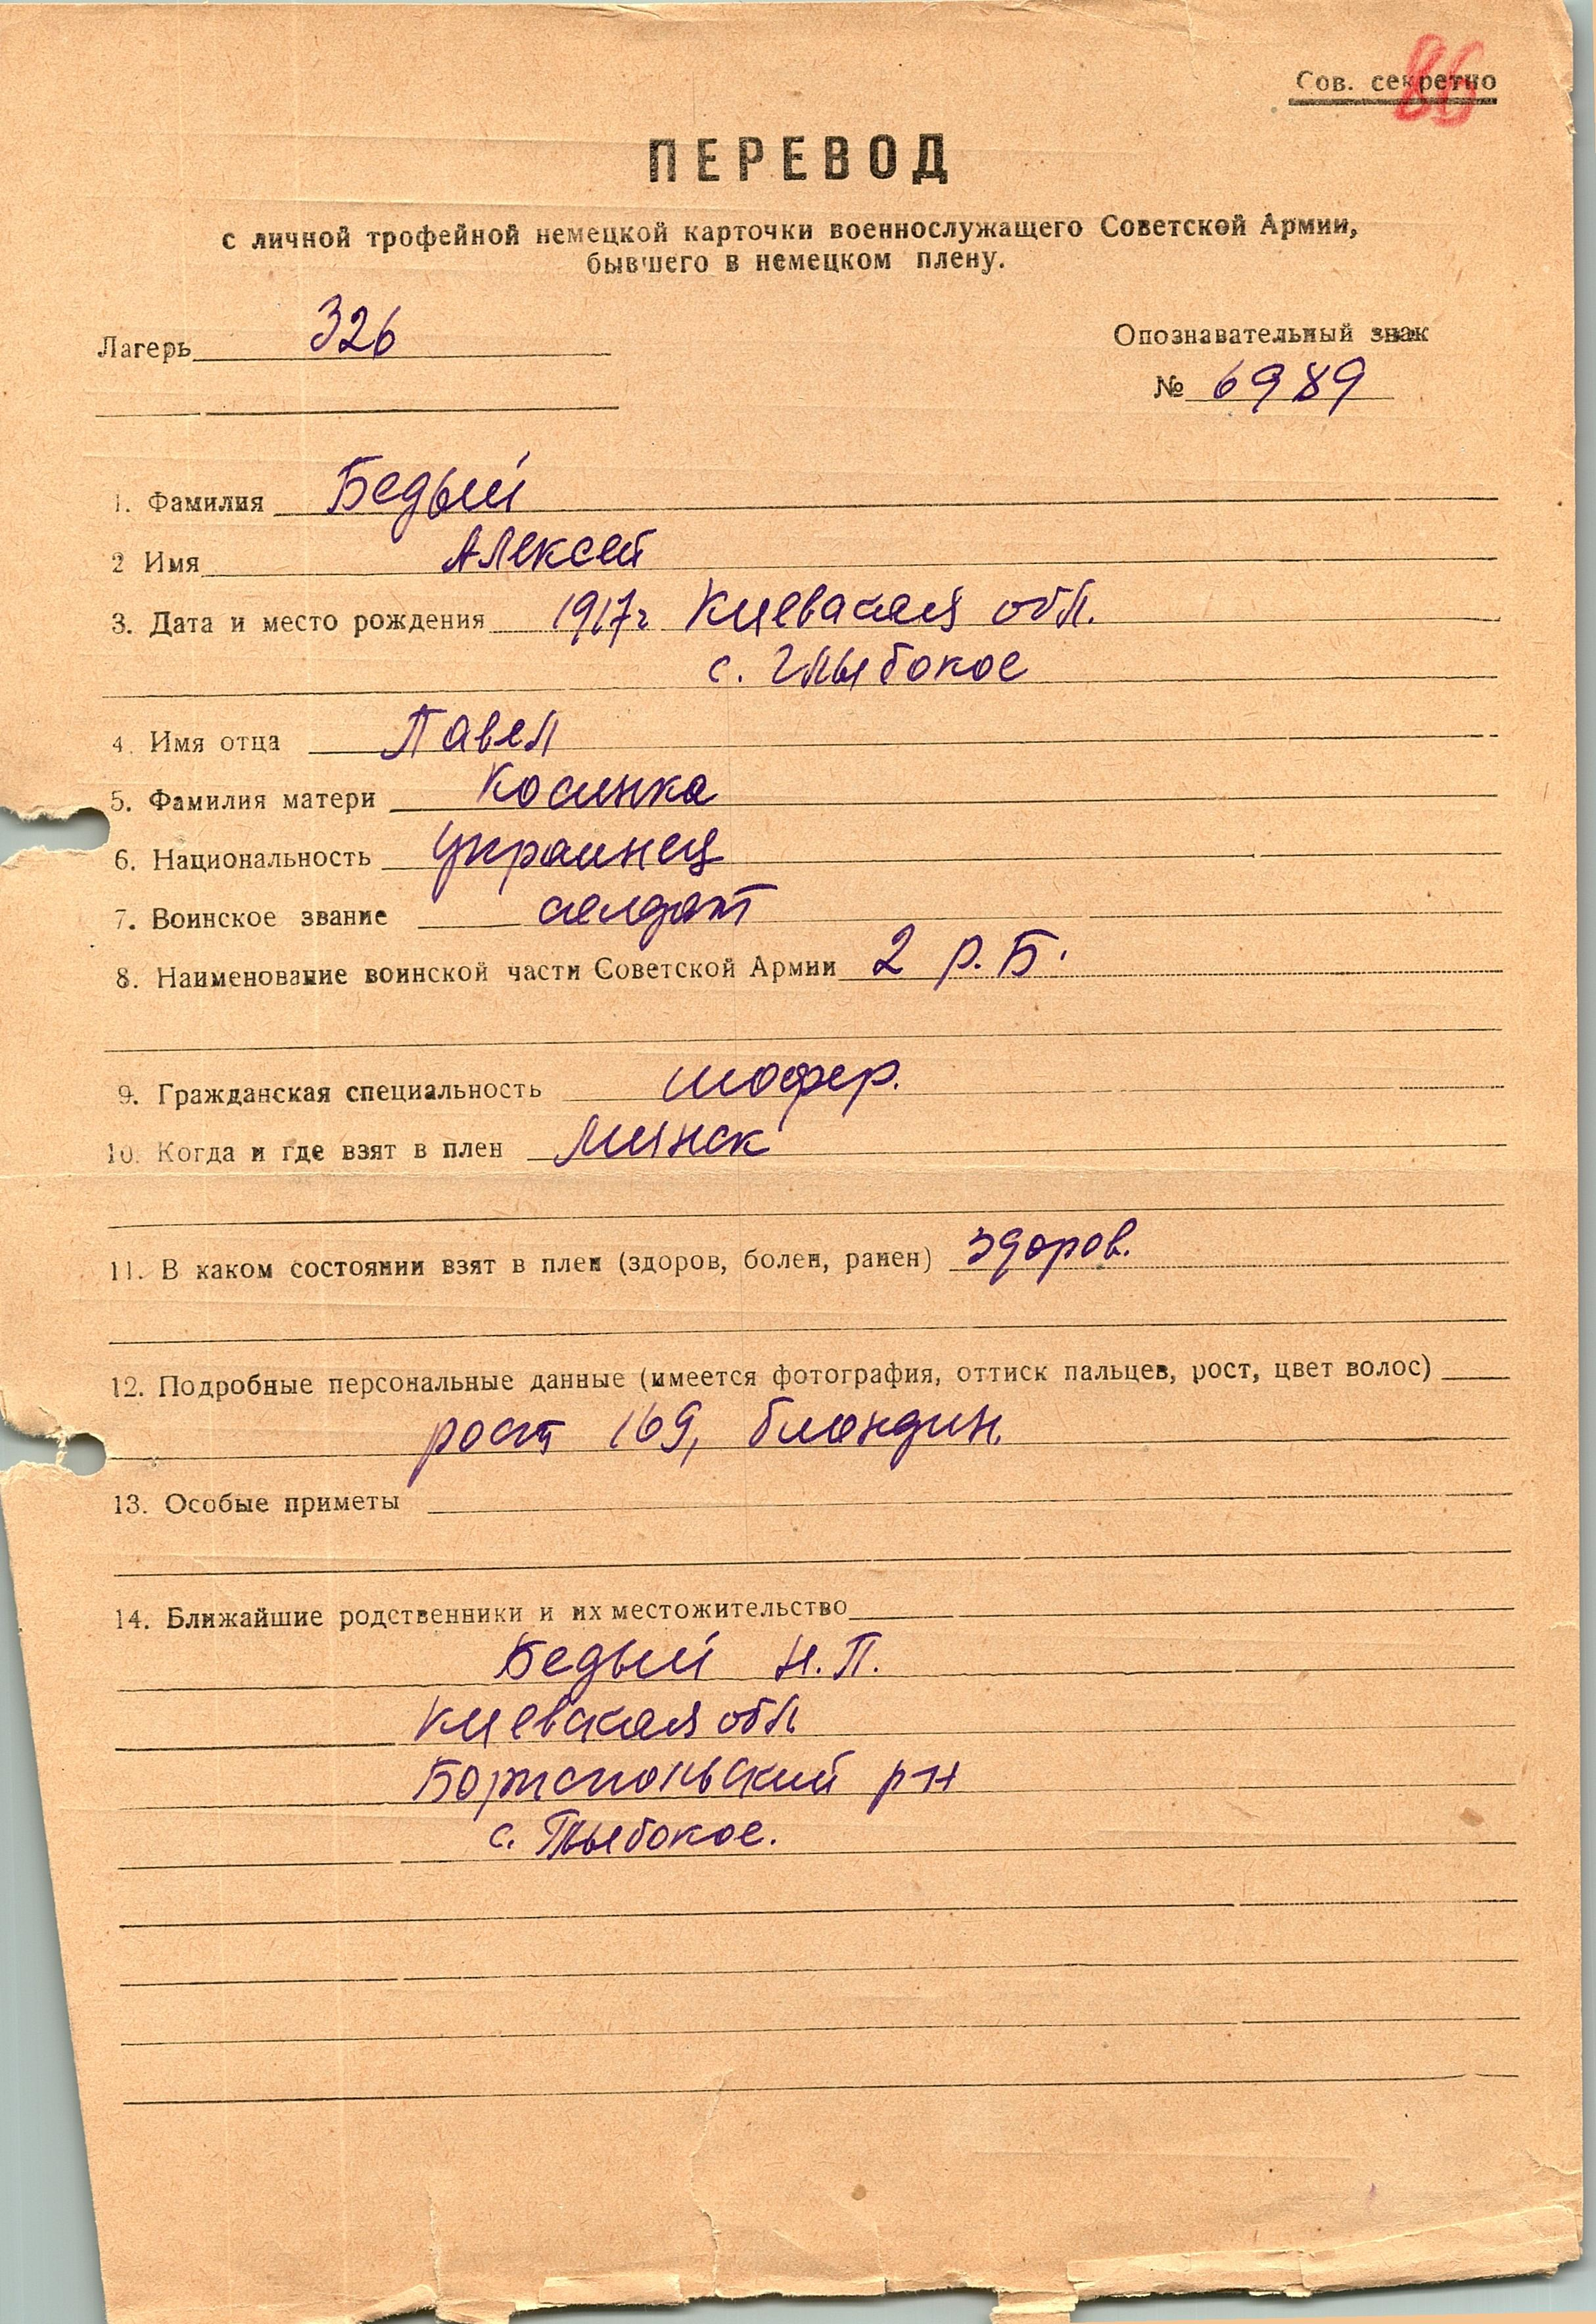 Сов. секретно
86
ПЕРЕВОД
с личной трофейной немецкой карточки военнослужащего Советской Армии,
бывшего в немецком плену.
Лагерь 326
Опознавательный знак
№ 6989
1. Фамилия Бедый
2 Имя Алексей
3. Дата и место рождения 1917г Киевская обл.
с. Глыбокое
4. Имя отца Павел
5. Фамилия матери Косинка
6. Национальность украинец
7. Воинское звание солдат
8. Наименование воинской части Советской Армии 2 р.Б.
9. Гражданская специальность шофер.
10. Когда и где взят в плен Минск
11. В каком состоянии взят в плен (здоров, болен, ранен) здоров.
12. Подробные персональные данные (имеется фотография, оттиск пальцев, рост, цвет волос)
рост 169, блондин.
13. Особые приметы
14. Ближайшие родственники и их местожительство
Бедый Н.П.
Киевская обл
Бориспольский р-н
с. Глыбокое.